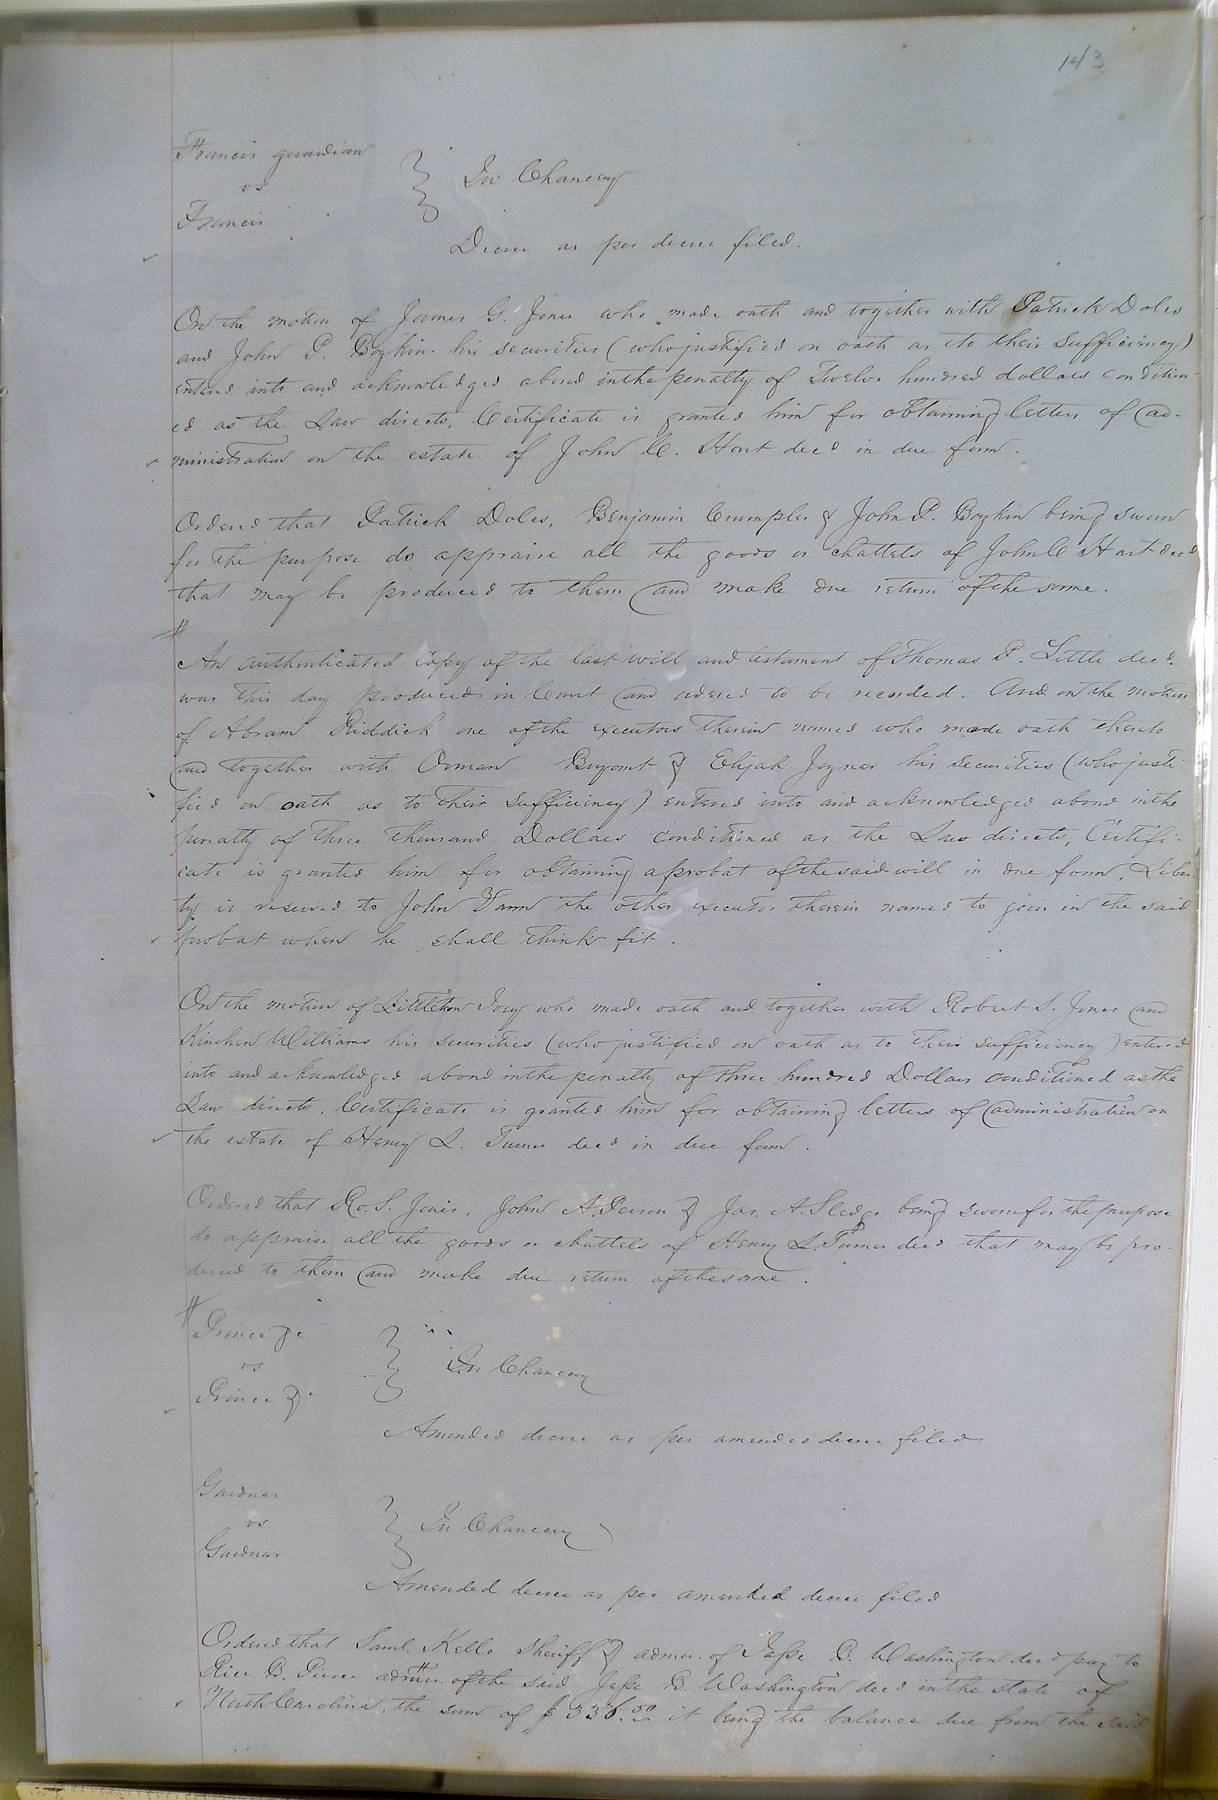 143
Francis guardian
vs
Francis
In Chancery
Decree as per decree filed.
On the motion of James G. Jones who made oath and together with Patrick Doles
and John P. Boykin his securities (who justified on oath as to their sufficiency)
entered into and acknowledged a bond in the penalty of Twelve hundred dollars condition-
ed as the Law directs, Certificate is granted him for obtaining letters of ad-
ministration on the estate of John C. Hart decd in due form.
Ordered that Patrick Doles, Benjamin Crumpler & John P. Boykin being sworn
for the purpose do appraise all the goods or chattels of John C Hart decd
that may be produced to them and make due return of the same.
#
An authenticated copy of the last will and testament of Thomas P. Little decd.
was this day produced in Court and ordered to be recorded. And on the motion
of Abram Riddick one of the executors therein named who made oath thereto
and together with Orman & Elijah Joyner his securities (who justi
fied on oath as to their sufficiency) entered into and acknowledged a bond in the
penalty of three thousand Dollars conditioned as the Law directs, Certifi-
cate is granted him for obtaining a probat of the said will in due form, Liber
ty is reserved to John Vann the other executor therein named to join in the said
probat when he shall think fit.
On the motion of Littleton Ivey who made oath and together with Robert S. Jones and
Kinchen Williams his securities (who justified on oath as to their sufficiency) entered
into and acknowledged a bond in the penalty of three hundred Dollars conditioned as the
Law directs, Certificate is granted him for obtaining letters of administration on
the estate of Henry L. Turner decd in due form.
Ordered that Ro. S. Jones, John A. Person & Jas. A. Sledge being sworn for the purpose
do appraise all the goods or chattels of Henry L. Turner decd that may be pro-
duced to them and make due return of the same.
#
Prince &c
vs
Prince &c
In Chancery
Amended decree as per amended decree filed
Gardner
vs
Gardner
In Chancery
Amended decree as per amended decree filed
Ordered that Saml. Kello sheriff & admor. of Jesse B. Washington decd pay to
Rice B. Pierce admor. of the said Jesse B. Washington decd in the state of
North Carolina, the sum of $336.50 it being the balance due from the said